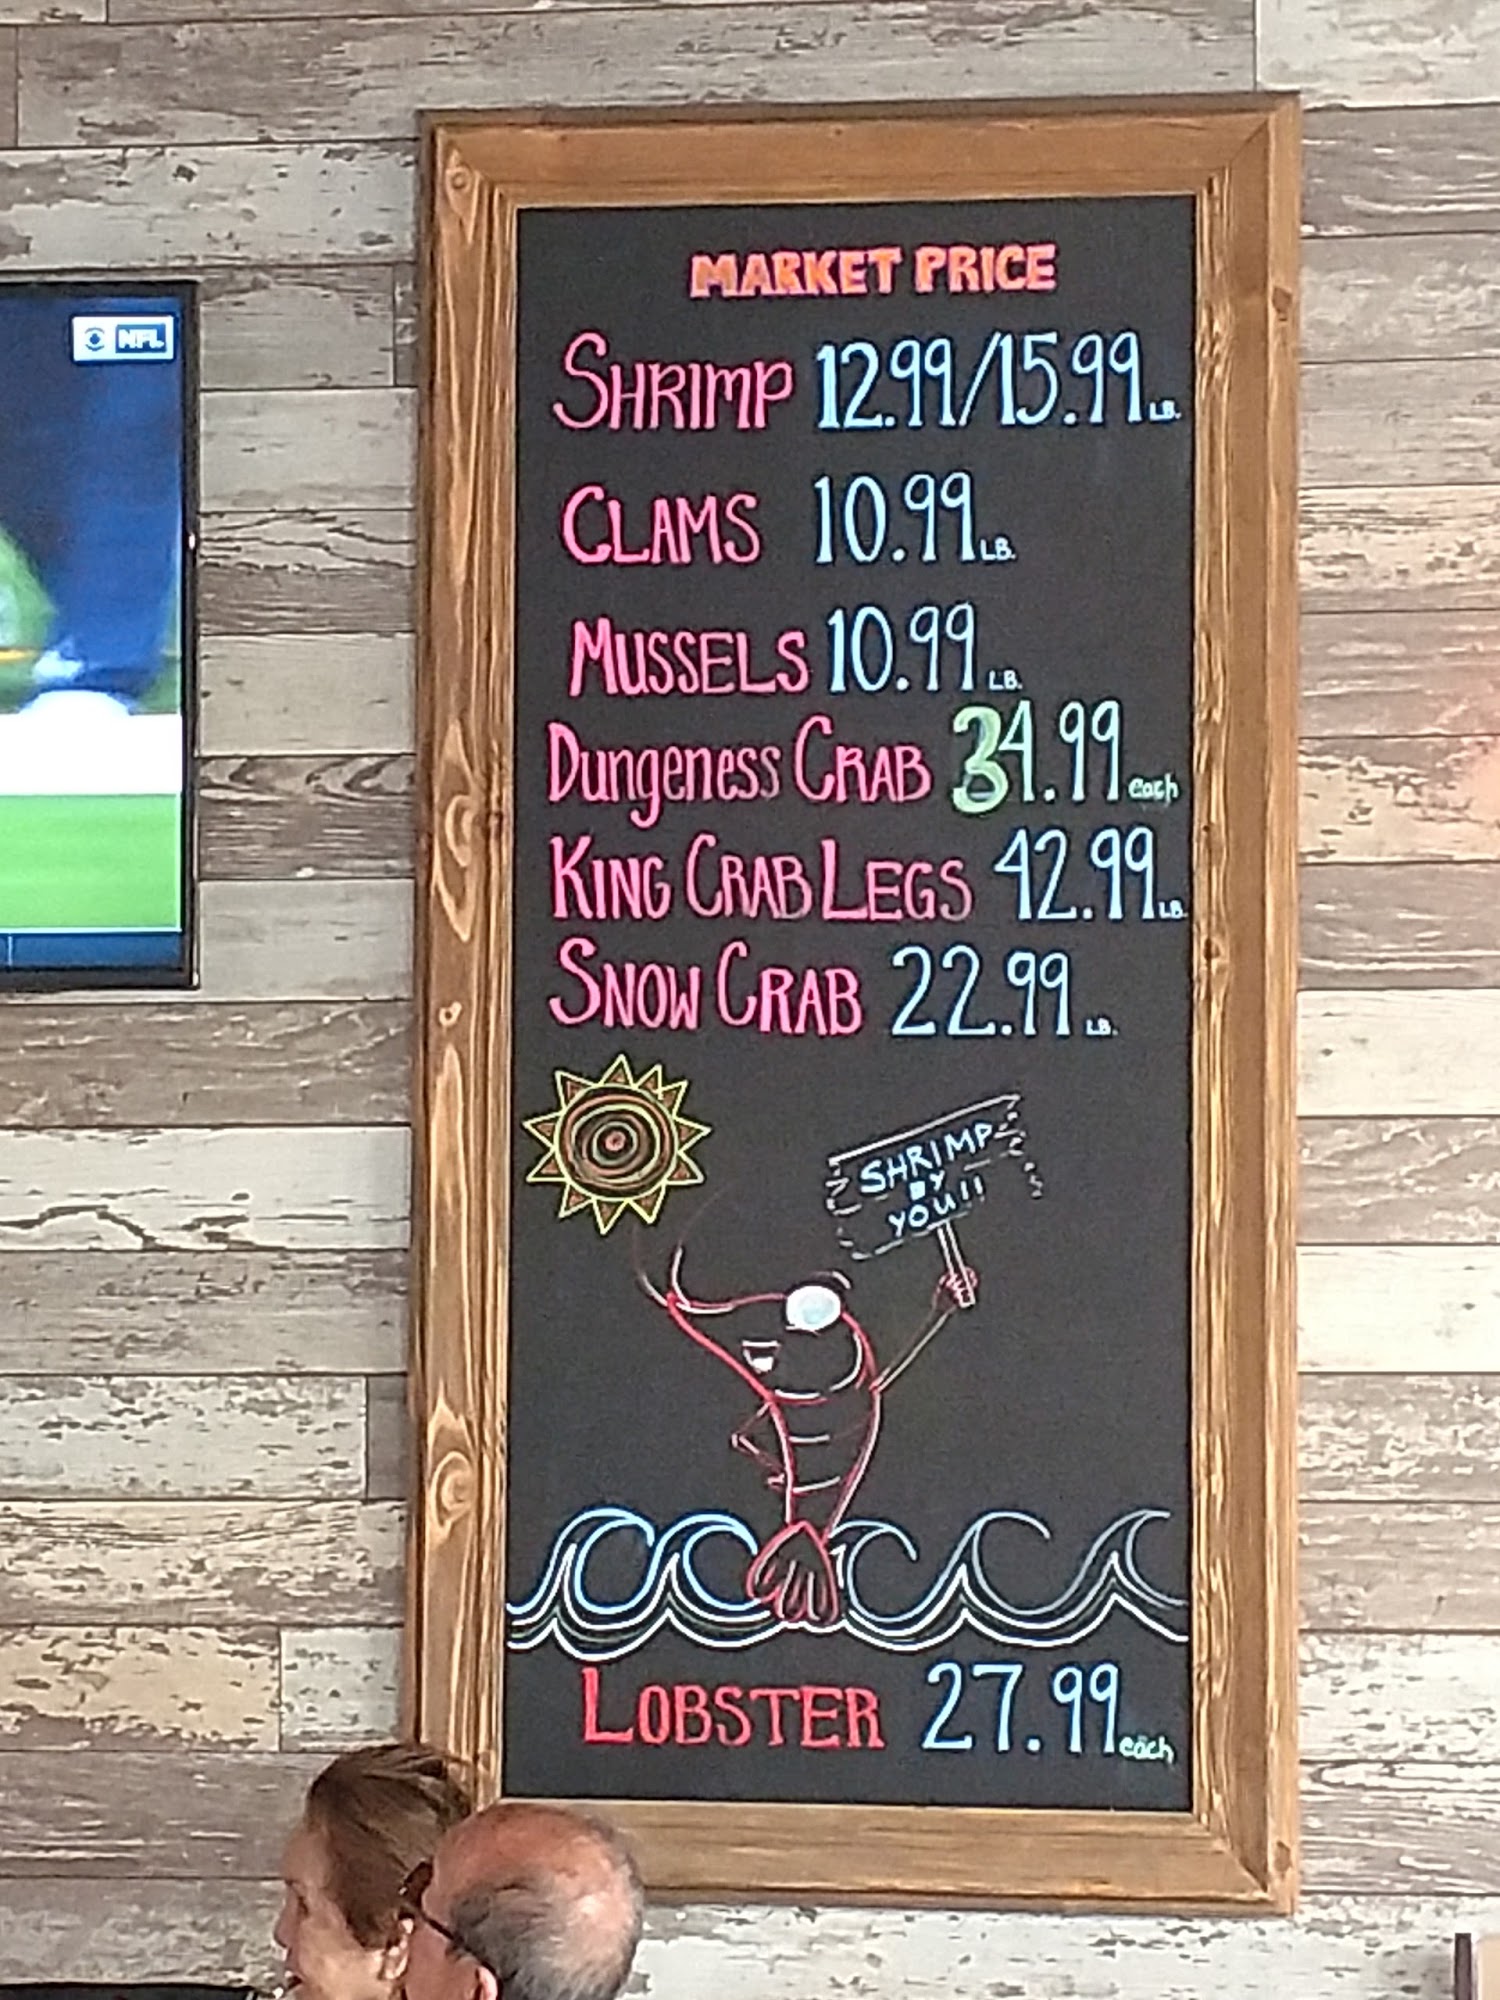 NFL
MARKET PRICE
SHRIMP 12.99/15.99 LB.
CLAMS 10.99 LB.
MUSSELS 10.99 LB.
Dungeness CRAB 34.99 each
KING CRAB LEGS 42.99 LB.
SNOW CRAB 22.99 LB.
SHRIMP
BY
YOU!!
LOBSTER 27.99 each